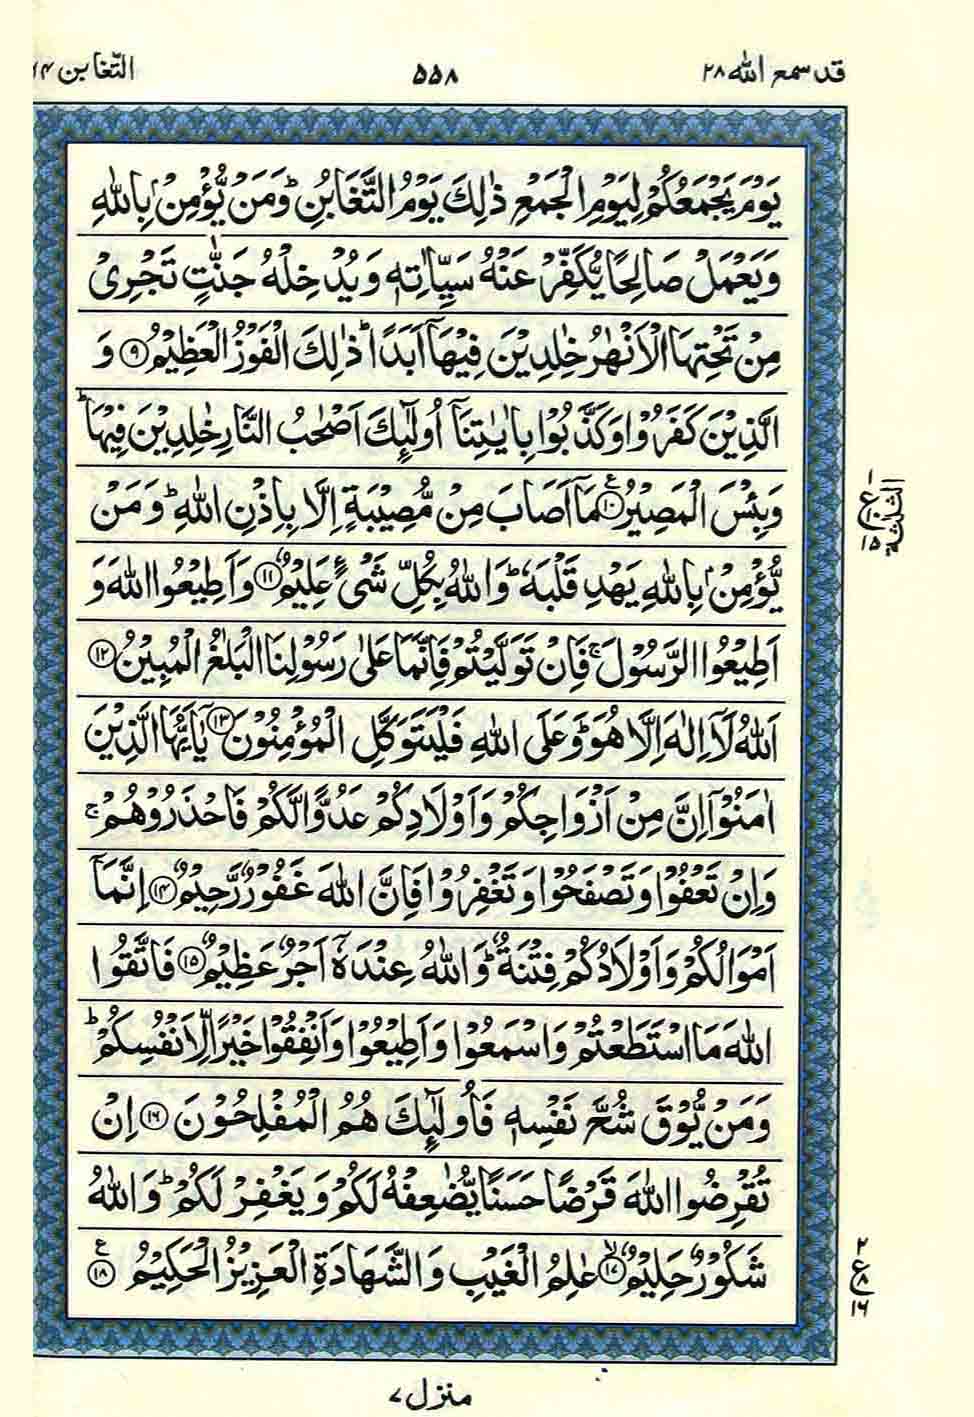 قد سمع الله ٢٨
٥٥٨
التّغابن ٦٤
يَوْمَ يَجْمَعُكُمْ لِيَوْمِ الْجَمْعِ ذٰلِكَ يَوْمُ التَّغَابُنِ ؕ وَمَنْ يُّؤْمِنْۢ بِاللّٰهِ
وَيَعْمَلْ صَالِحًا يُّكَفِّرْ عَنْهُ سَيِّاٰتِهٖ وَيُدْخِلْهُ جَنّٰتٍ تَجْرِىْ
مِنْ تَحْتِهَا الْاَنْهٰرُ خٰلِدِيْنَ فِيْهَاۤ اَبَدًا ؕ ذٰلِكَ الْفَوْزُ الْعَظِيْمُ ﴿۹﴾ وَ
الَّذِيْنَ كَفَرُوْا وَكَذَّبُوْا بِاٰيٰتِنَاۤ اُولٰٓئِكَ اَصْحٰبُ النَّارِ خٰلِدِيْنَ فِيْهَا ؕ
وَبِئْسَ الْمَصِيْرُ ﴿۱۰﴾ ع مَاۤ اَصَابَ مِنْ مُّصِيْبَةٍ اِلَّا بِاِذْنِ اللّٰهِ ؕ وَمَنْ
يُّؤْمِنْۢ بِاللّٰهِ يَهْدِ قَلْبَهٗ ؕ وَاللّٰهُ بِكُلِّ شَىْءٍ عَلِيْمٌ ﴿۱۱﴾ وَاَطِيْعُوا اللّٰهَ وَ
اَطِيْعُوا الرَّسُوْلَ ۚ فَاِنْ تَوَلَّيْتُمْ فَاِنَّمَا عَلٰى رَسُوْلِنَا الْبَلٰغُ الْمُبِيْنُ ﴿۱۲﴾
اَللّٰهُ لَاۤ اِلٰهَ اِلَّا هُوَ ؕ وَعَلَى اللّٰهِ فَلْيَتَوَكَّلِ الْمُؤْمِنُوْنَ ﴿۱۳﴾ يٰۤاَيُّهَا الَّذِيْنَ
اٰمَنُوْۤا اِنَّ مِنْ اَزْوَاجِكُمْ وَاَوْلَادِكُمْ عَدُوًّا لَّكُمْ فَاحْذَرُوْهُمْ ۚ
وَاِنْ تَعْفُوْا وَتَصْفَحُوْا وَتَغْفِرُوْا فَاِنَّ اللّٰهَ غَفُوْرٌ رَّحِيْمٌ ﴿۱۴﴾ اِنَّمَاۤ
اَمْوَالُكُمْ وَاَوْلَادُكُمْ فِتْنَةٌ ؕ وَاللّٰهُ عِنْدَهٗۤ اَجْرٌ عَظِيْمٌ ﴿۱۵﴾ فَاتَّقُوا
اللّٰهَ مَا اسْتَطَعْتُمْ وَاسْمَعُوْا وَاَطِيْعُوْا وَاَنْفِقُوْا خَيْرًا لِّاَنْفُسِكُمْ ؕ
وَمَنْ يُّوْقَ شُحَّ نَفْسِهٖ فَاُولٰٓئِكَ هُمُ الْمُفْلِحُوْنَ ﴿۱۶﴾ اِنْ
تُقْرِضُوا اللّٰهَ قَرْضًا حَسَنًا يُّضٰعِفْهُ لَكُمْ وَيَغْفِرْ لَكُمْ ؕ وَاللّٰهُ
شَكُوْرٌ حَلِيْمٌ ﴿۱۷﴾ ۙ عٰلِمُ الْغَيْبِ وَالشَّهَادَةِ الْعَزِيْزُ الْحَكِيْمُ ﴿۱۸﴾ ع
۱
ع ۱۰
۱۵
الثلثة
۲
ع ۸
۱۶
منزل ۷